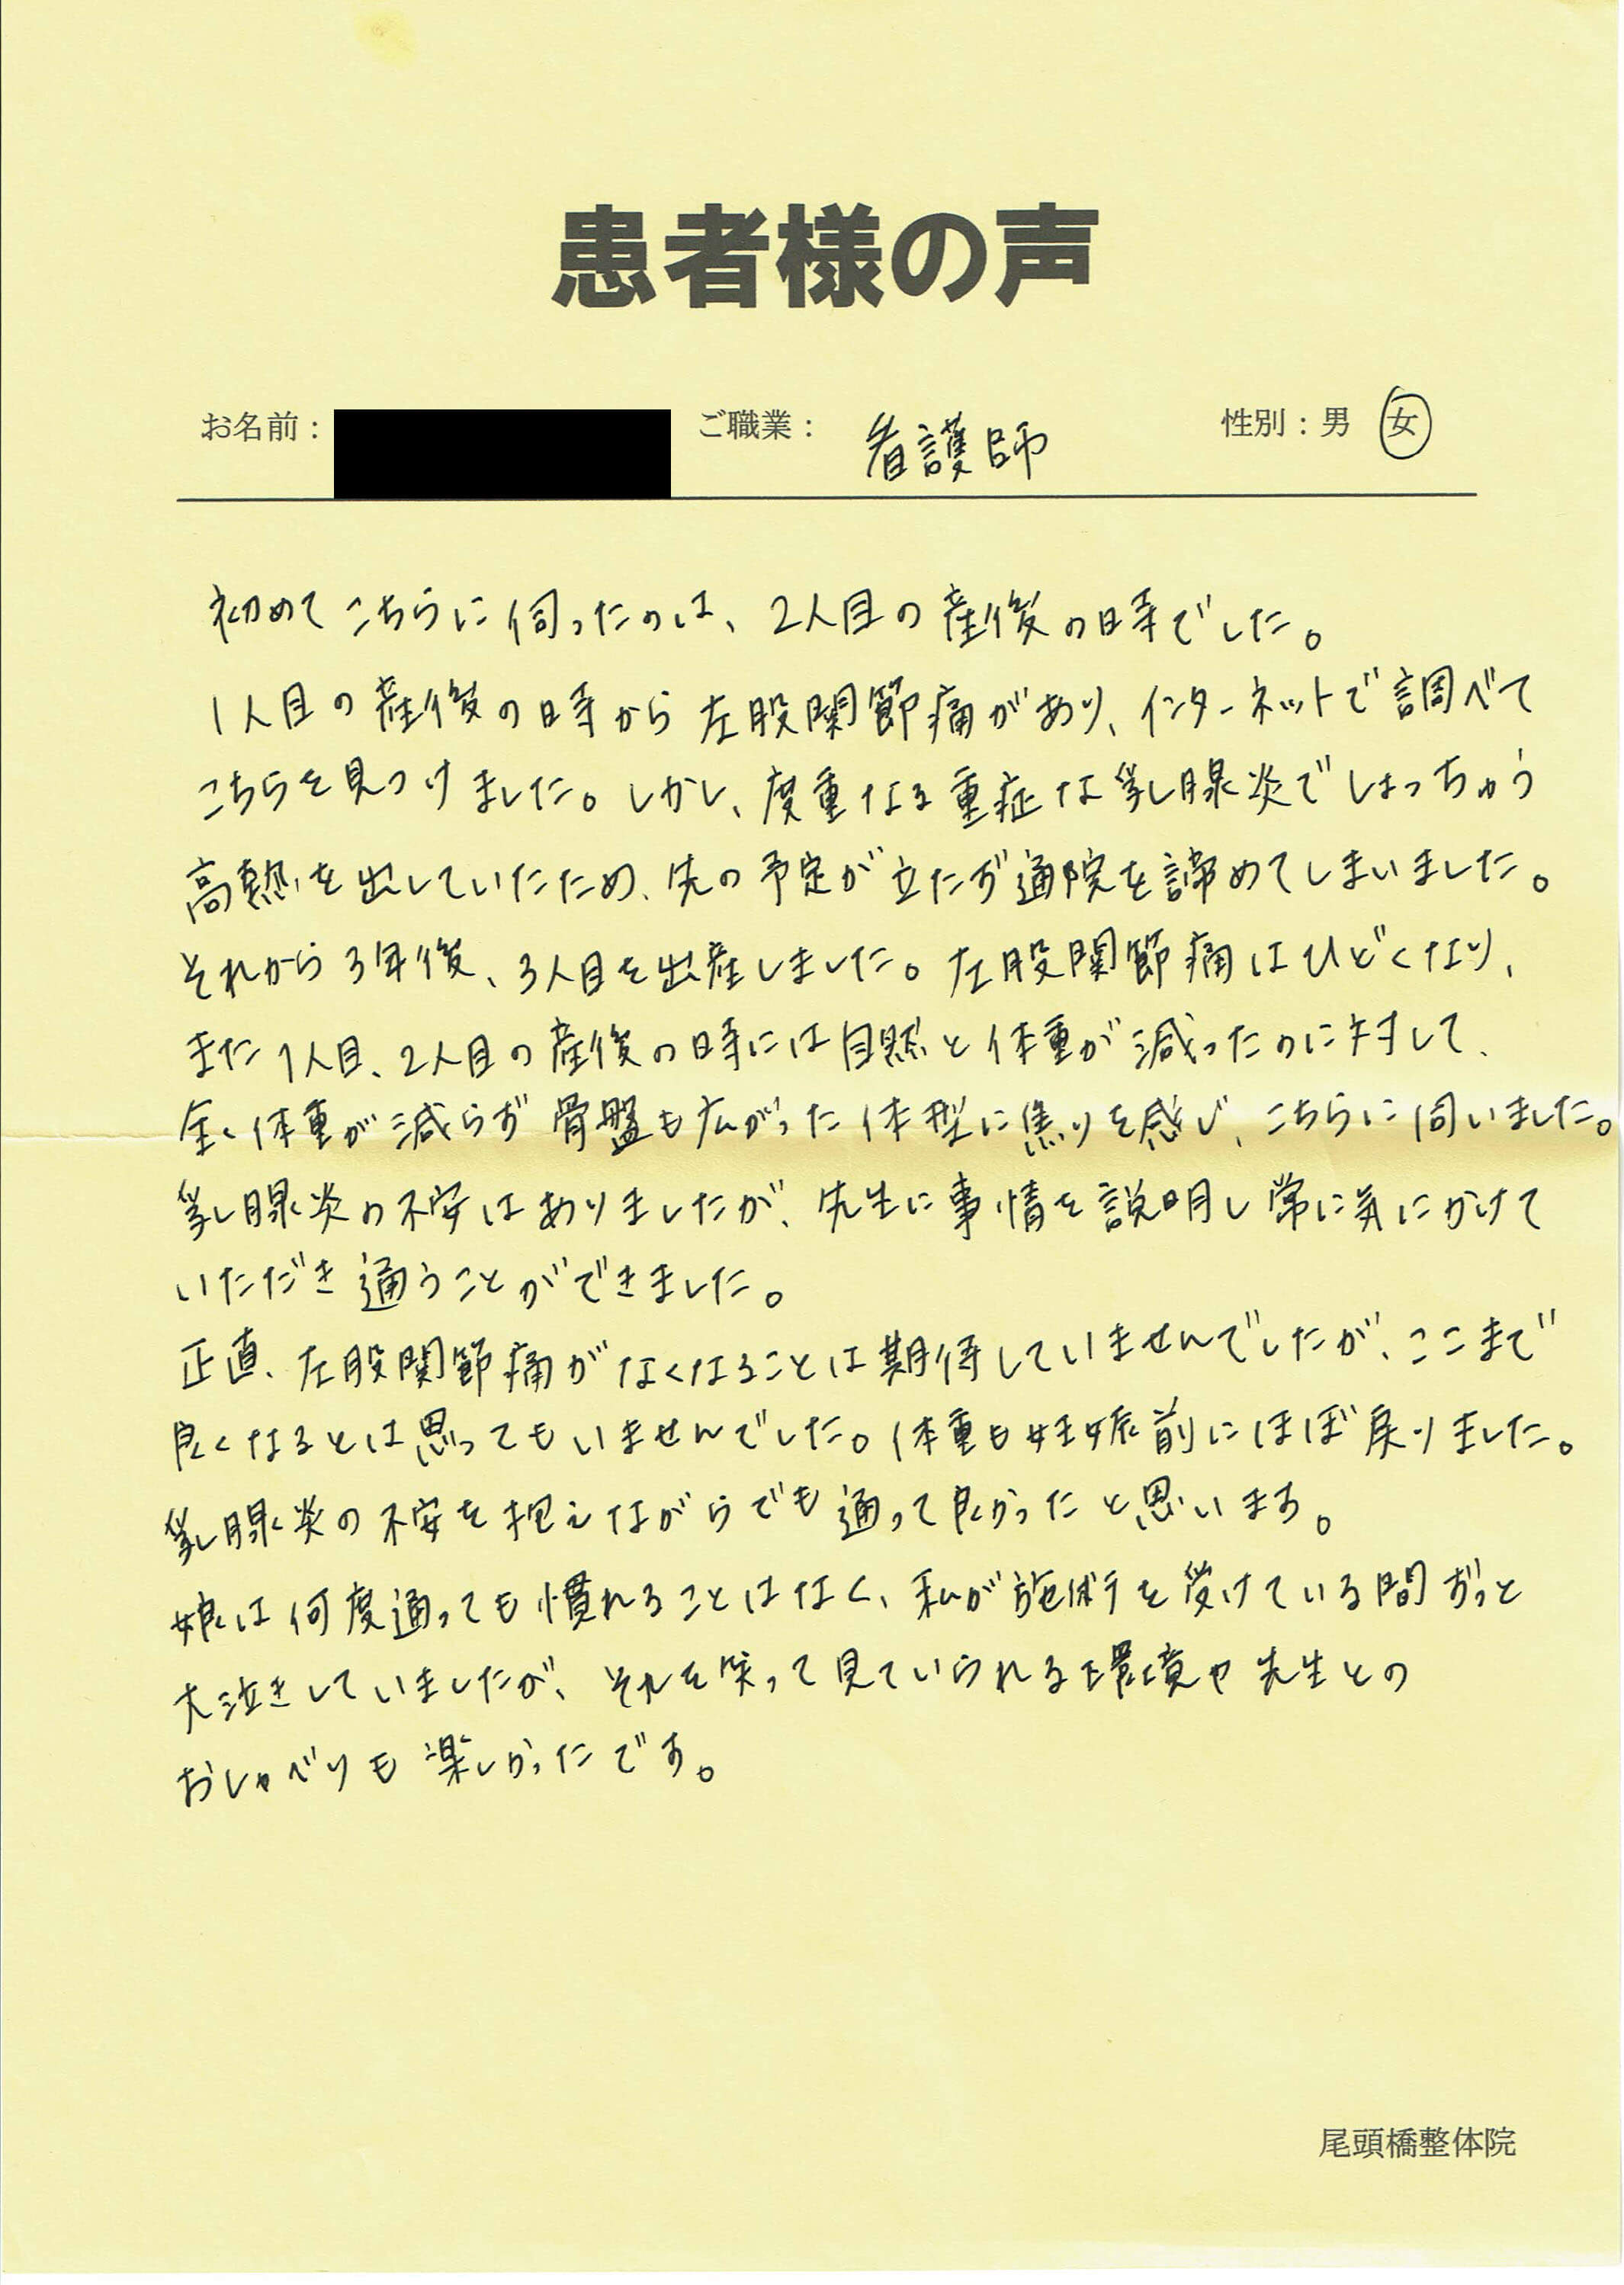 患者様の声
お名前： ご職業： 看護師 性別：男 女
初めてこちらに伺ったのは、2人目の産後の時でした。
1人目の産後の時から左股関節痛があり、インターネットで調べて
こちらを見つけました。しかし、度重なる重症な乳腺炎でしょっちゅう
高熱を出していたため、先の予定が立たず通院を諦めてしまいました。
それから3年後、3人目を出産しました。左股関節痛はひどくなり、
また1人目、2人目の産後の時には自然と体重が減ったのに対して、
全く体重が減らず骨盤も広がった体型に焦りを感じ、こちらに伺いました。
乳腺炎の不安はありましたが、先生に事情を説明し常に気にかけて
いただき通うことができました。
正直、左股関節痛がなくなることは期待していませんでしたが、ここまで
良くなるとは思ってもいませんでした。体重も妊娠前にほぼ戻りました。
乳腺炎の不安を抱えながらでも通って良かったと思います。
娘は何度通っても慣れることはなく、私が施術を受けている間ずっと
大泣きしていましたが、それを笑って見ていられる環境や先生との
おしゃべりも楽しかったです。
尾頭橋整体院